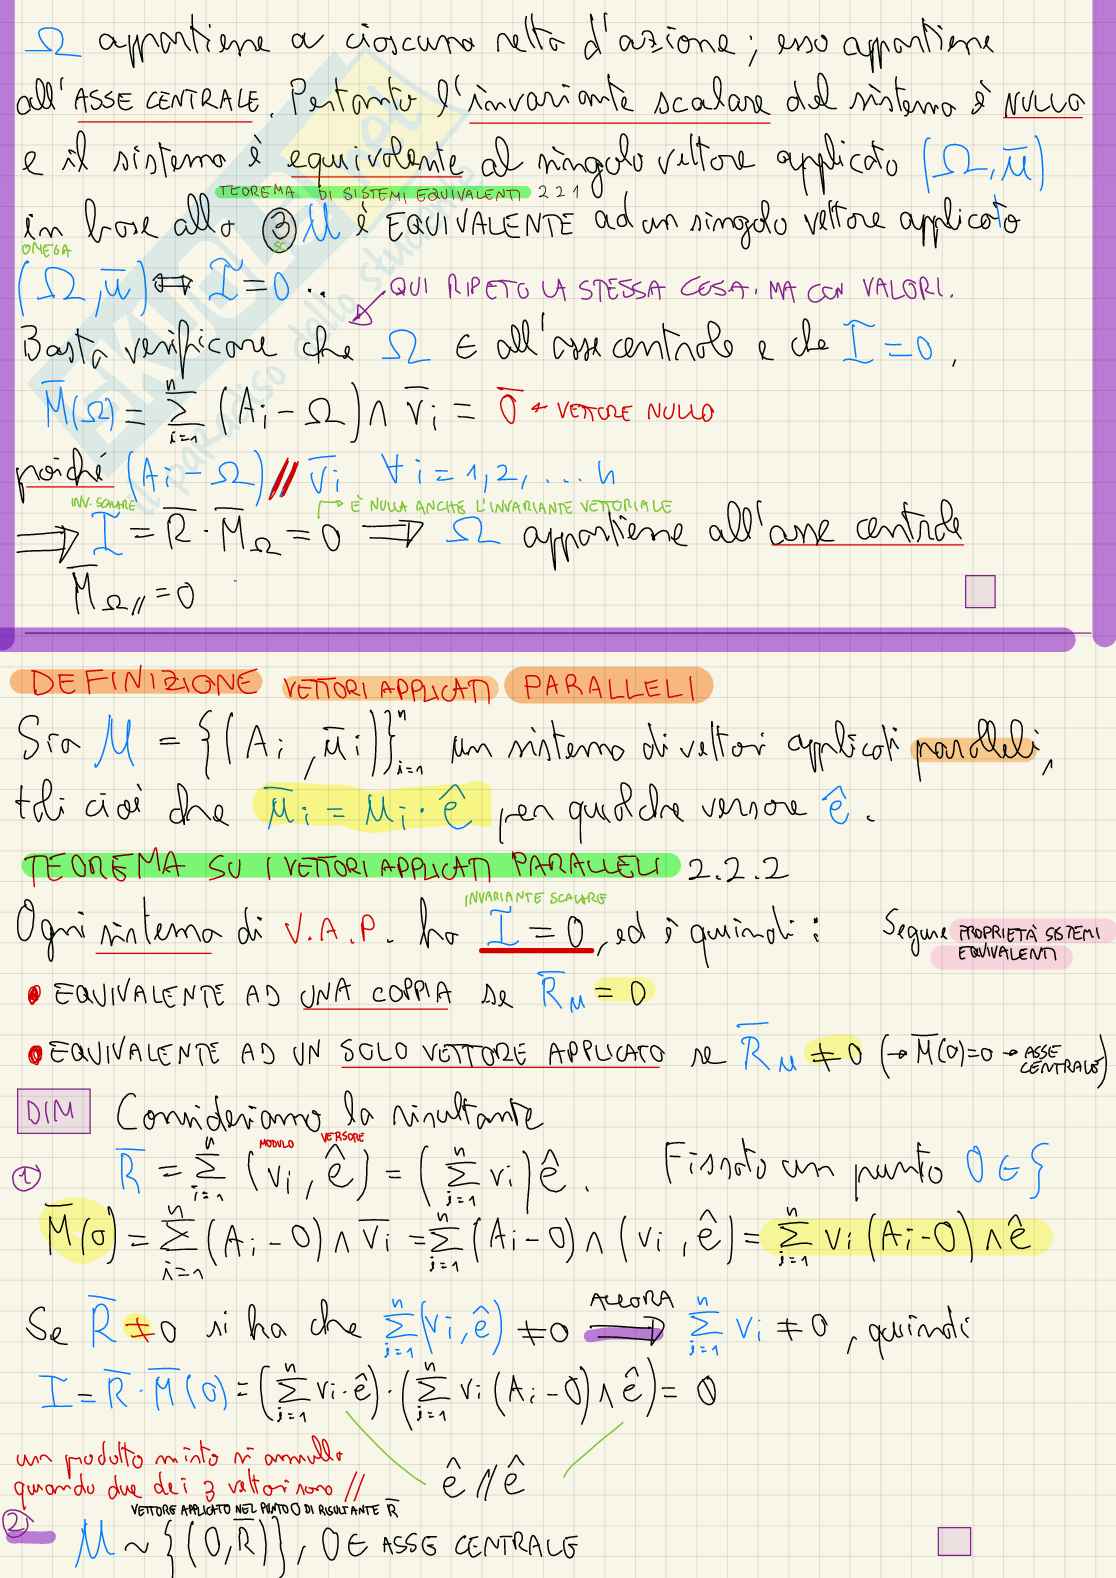 Ω appartiene a ciascuna retta d'azione; esso appartiene
all'ASSE CENTRALE. Pertanto l'invariante scalare del sistema è NULLO
e il sistema è equivalente al singolo vettore applicato (Ω, u̅)
TEOREMA DI SISTEMI EQUIVALENTI 2 2 1
in base allo ③ M è EQUIVALENTE ad un singolo vettore applicato
OMEGA
(Ω, u̅) ⟺ I = 0 ..
QUI RIPETO LA STESSA COSA. MA CON VALORI.
Basta verificare che Ω ∈ all'asse centrale e che I = 0,
M̅(Ω) = Σⁿᵢ₌₁ (Aᵢ - Ω) ∧ v̅ᵢ = 0̅ ← VETTORE NULLO
poiché (Aᵢ - Ω) // v̅ᵢ ∀ i = 1, 2, ... n
INV. SCALARE
È NULLA ANCHE L'INVARIANTE VETTORIALE
⟹ I = R̅ · M̅_Ω = 0 ⟹ Ω appartiene all'asse centrale
M̅_Ω// = 0
DEFINIZIONE VETTORI APPLICATI PARALLELI
Sia M = {(Aᵢ, u̅ᵢ)}ⁿᵢ₌₁ un sistema di vettori applicati paralleli,
tali cioè che u̅ᵢ = uᵢ · ê per qualche versore ê.
TEOREMA SU I VETTORI APPLICATI PARALLELI 2.2.2
INVARIANTE SCALARE
Ogni sistema di V.A.P. ha I = 0, ed è quindi:
Segue PROPRIETÀ SISTEMI
EQUIVALENTI
• EQUIVALENTE AD UNA COPPIA se R̅_M = 0
• EQUIVALENTE AD UN SOLO VETTORE APPLICATO se R̅_M ≠ 0 (→ M̅(0)=0 → ASSE
CENTRALE)
DIM Consideriamo la risultante
MODULO VERSORE
① R̅ = Σⁿᵢ₌₁ (vᵢ, ê) = (Σⁿᵢ₌₁ vᵢ) ê. Fissato un punto O ∈ ξ
M̅(o) = Σⁿᵢ₌₁ (Aᵢ - O) ∧ v̅ᵢ = Σⁿᵢ₌₁ (Aᵢ - O) ∧ (vᵢ, ê) = Σⁿᵢ₌₁ vᵢ (Aᵢ - O) ∧ ê
ALLORA
Se R̅ ≠ 0 si ha che Σⁿᵢ₌₁ (vᵢ, ê) ≠ 0 ⟶ Σⁿᵢ₌₁ vᵢ ≠ 0, quindi
I = R̅ · M̅(O) = (Σⁿᵢ₌₁ vᵢ · ê) · (Σⁿᵢ₌₁ vᵢ (Aᵢ - O) ∧ ê) = 0
un prodotto misto si annulla
quando due dei 3 vettori sono //
ê // ê
VETTORE APPLICATO NEL PUNTO O DI RISULTANTE R̅
② M ~ {(O, R̅)}, O ∈ ASSE CENTRALE